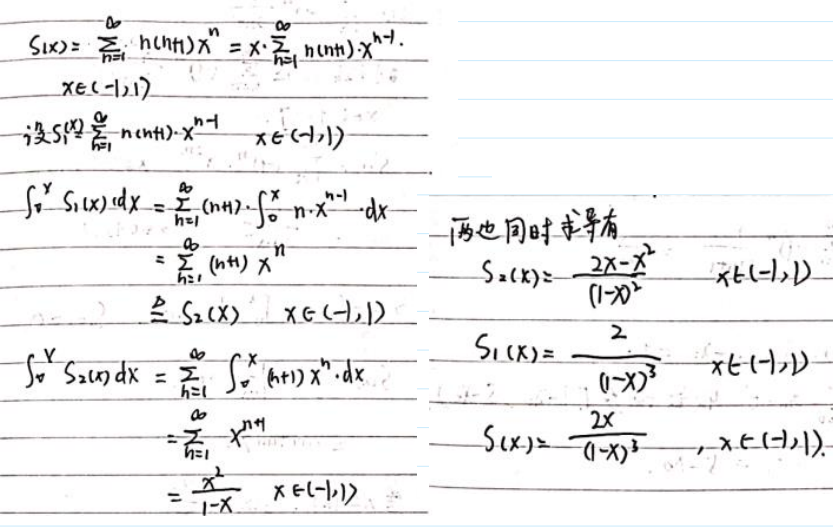 S(x) = ∑_{n=1}^{∞} n(n+1)x^n = x·∑_{n=1}^{∞} n(n+1)·x^{n-1}.
x∈(-1,1)
设S₁(x)=∑_{n=1}^{∞} n(n+1)·x^{n-1} x∈(-1,1)
∫₀^x S₁(x)·dx = ∑_{n=1}^{∞} (n+1)·∫₀^x n·x^{n-1}·dx
= ∑_{n=1}^{∞} (n+1) x^n
≜ S₂(x) x∈(-1,1)
∫₀^x S₂(x) dx = ∑_{n=1}^{∞} ∫₀^x (n+1) x^n·dx
= ∑_{n=1}^{∞} x^{n+1}
= x²/(1-x) x∈(-1,1)
两边同时求导有
S₂(x) = (2x-x²)/(1-x)² x∈(-1,1)
S₁(x) = 2/(1-x)³ x∈(-1,1)
S(x) = 2x/(1-x)³ , x∈(-1,1).